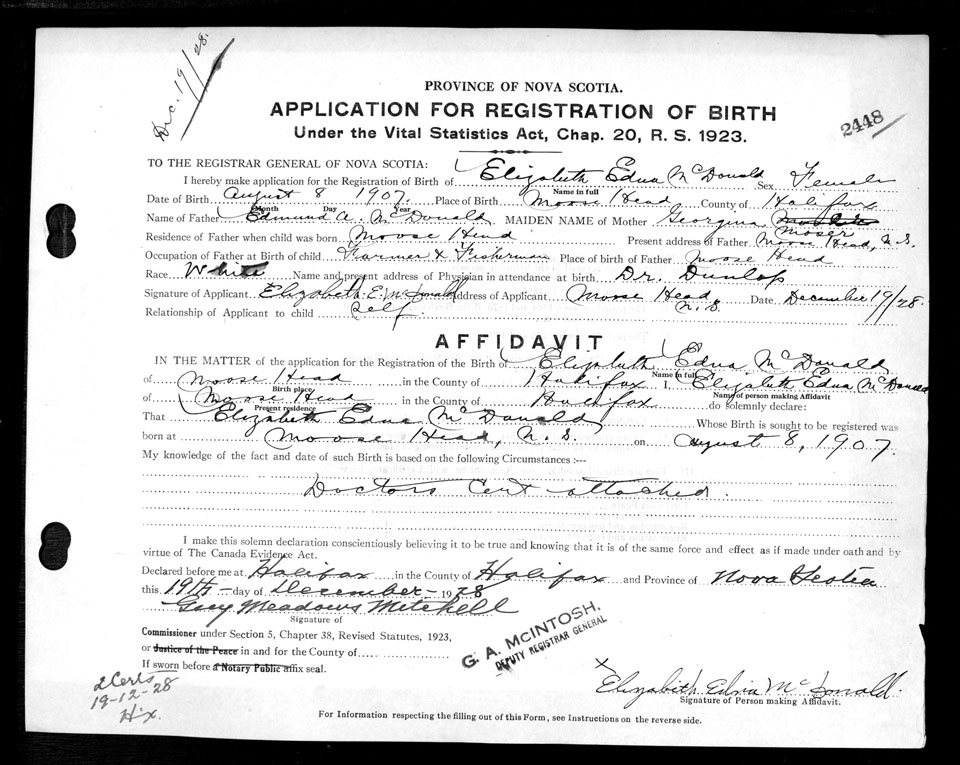 Dec. 19/28.
PROVINCE OF NOVA SCOTIA.
APPLICATION FOR REGISTRATION OF BIRTH
Under the Vital Statistics Act, Chap. 20, R. S. 1923.
2448
TO THE REGISTRAR GENERAL OF NOVA SCOTIA:
I hereby make application for the Registration of Birth of Elizabeth Edna McDonald Sex Female
Name in full
Date of Birth August 8 1907. Place of Birth Moose Head County of Halifax
Month Day Year
Name of Father Edmund A. McDonald MAIDEN NAME of Mother Georgina Moser
Residence of Father when child was born Moose Head Present address of Father Moose Head, N.S.
Occupation of Father at Birth of child Farmer & Fisherman Place of birth of Father Moose Head
Race White Name and present address of Physician in attendance at birth Dr. Dunlop
Signature of Applicant Elizabeth E. McDonald Address of Applicant Moose Head, N.S. Date December 19/28.
Relationship of Applicant to child Self.
AFFIDAVIT
IN THE MATTER of the application for the Registration of the Birth of Elizabeth Edna McDonald
Name in full
of Moose Head in the County of Halifax I, Elizabeth Edna McDonald
Birth place Name of person making Affidavit
of Moose Head in the County of Halifax do solemnly declare:
Present residence
That Elizabeth Edna McDonald Whose Birth is sought to be registered was
born at Moose Head, N.S. on August 8, 1907.
My knowledge of the fact and date of such Birth is based on the following Circumstances :---
Doctors Cert attached.
I make this solemn declaration conscientiously believing it to be true and knowing that it is of the same force and effect as if made under oath and by
virtue of The Canada Evidence Act.
Declared before me at Halifax in the County of Halifax and Province of Nova Scotia
this 19th day of December 1928
Guy Meadows Mitchell
Signature of
Commissioner under Section 5, Chapter 38, Revised Statutes, 1923,
or Justice of the Peace in and for the County of
If sworn before a Notary Public affix seal.
G. A. McINTOSH,
DEPUTY REGISTRAR GENERAL
2 Certs
19-12-28
Hx.
X Elizabeth Edna McDonald.
Signature of Person making Affidavit.
For Information respecting the filling out of this Form, see Instructions on the reverse side.